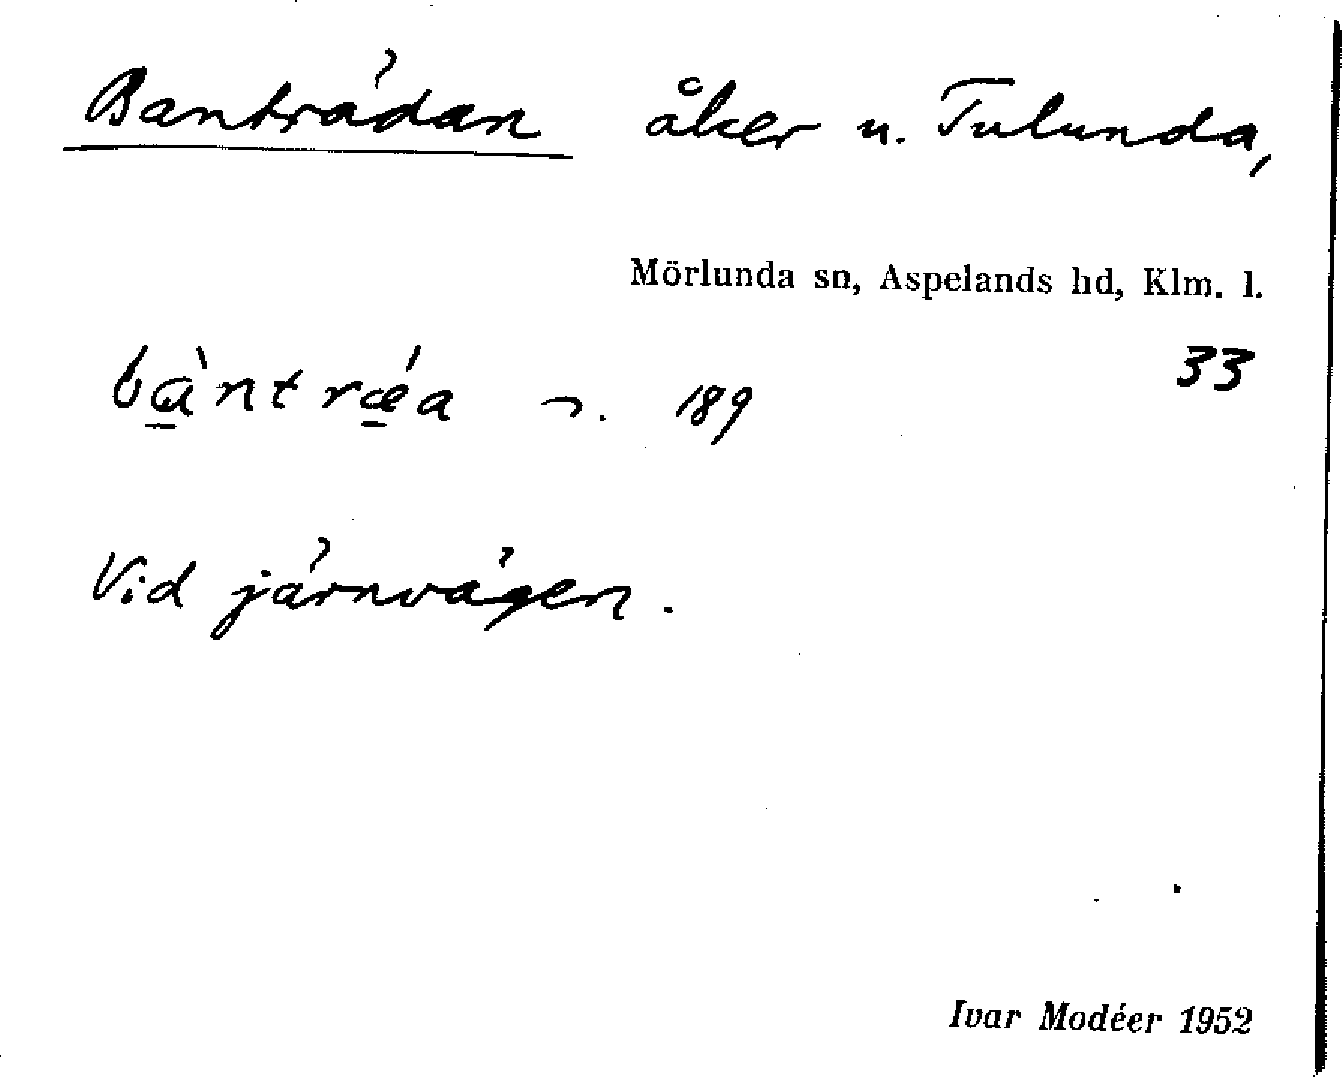 Banträdan åker u. Tulunda,
Mörlunda sn, Aspelands hd, Klm. l.
33
bàntrǽa 189
Vid järnvägen.
Ivar Modéer 1952